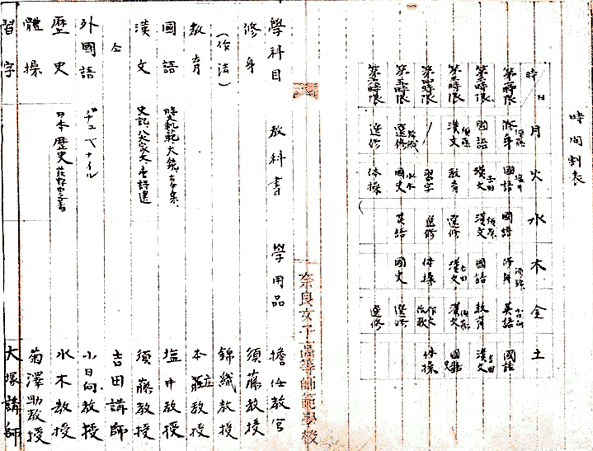 時間割表
時 日 月 火 水 木 金 土
第一時限 修身 國語 國語 修身 英語 國語
第二時限 國語 漢文 漢文 國語 教育 漢文
第三時限 漢文 教育 選修 漢文 漢文 國語
第四時限 習字 選修 体操 作文 体操
第五時限 選修 國史 英語 國史 選修
第六時限 選修 体操 選修
奈良女子高等師範學校
學科目 教科書 學用品 擔任教官
修身 須藤教授
(作法) 錦織教授
教育 本庄教授
國語 大鏡 塩井教授
漢文 史記 八大家文 唐詩選 須藤教授
仝 吉田講師
外國語 小日向教授
歷史 日本歷史 水木教授
體操 菊澤助教授
習字 大塚講師